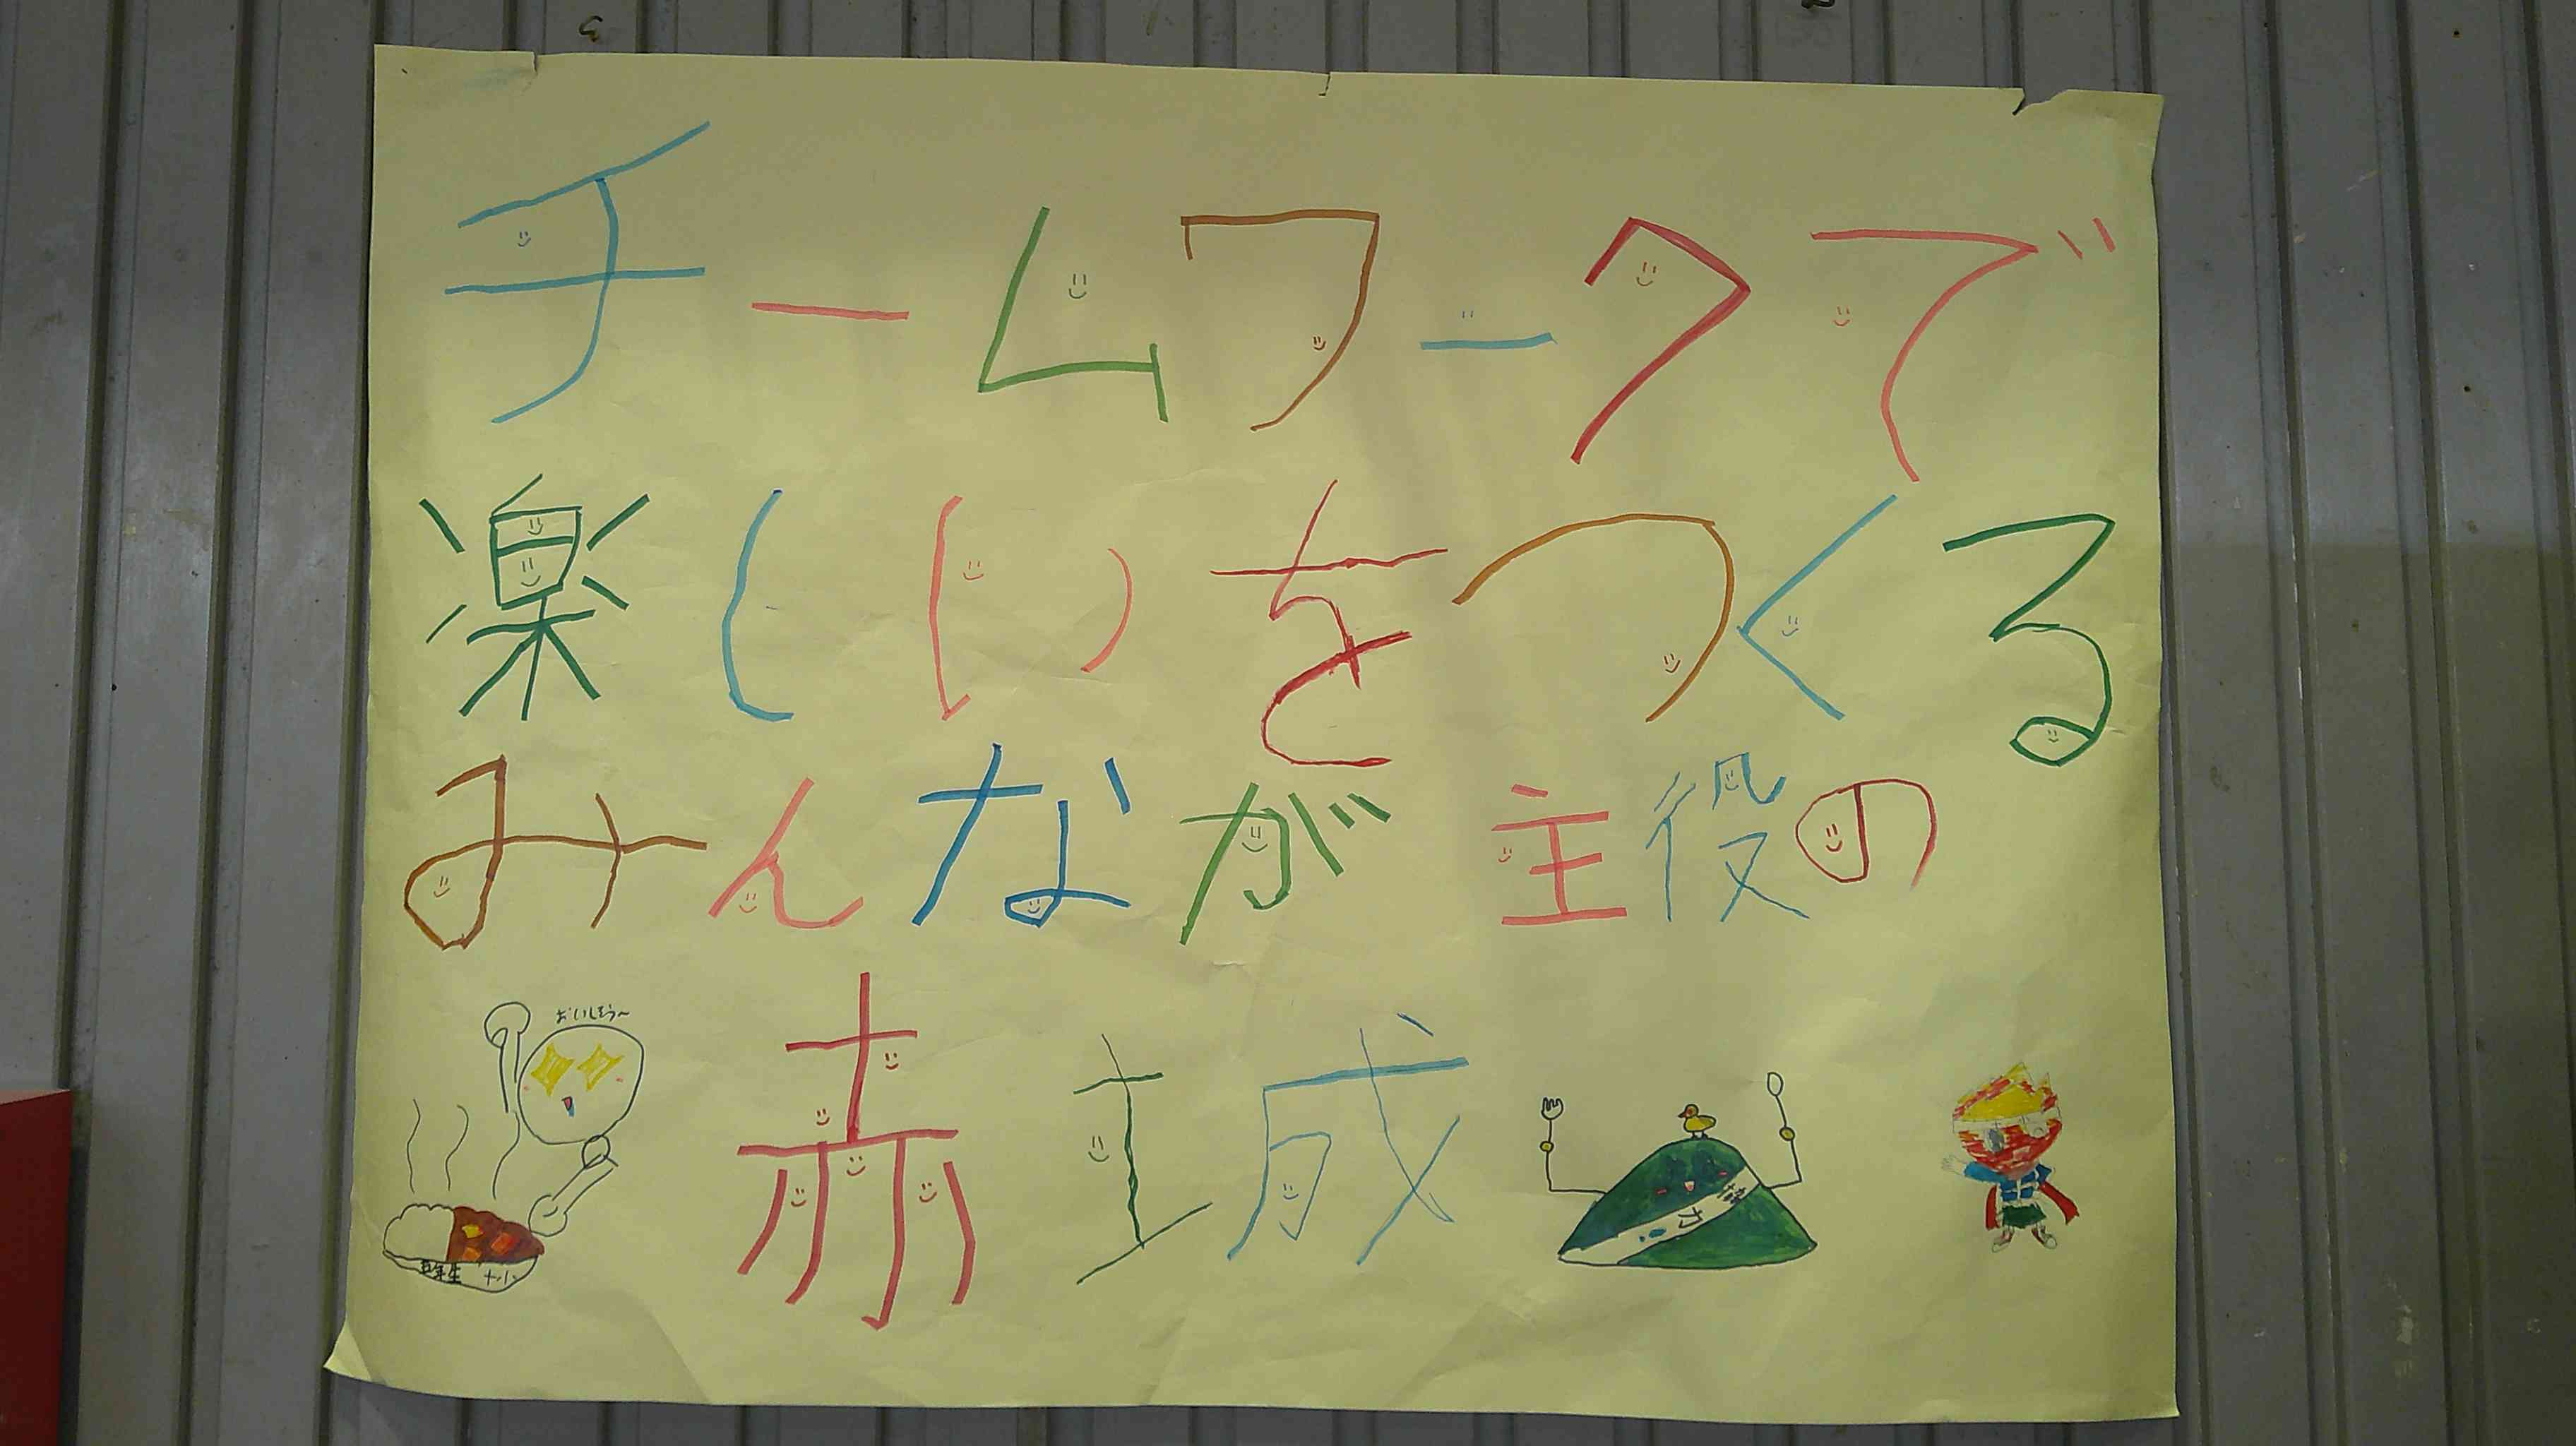 チームワークで
楽しいをつくる
みんなが主役の
赤城
おいしそう〜
五年生
協力